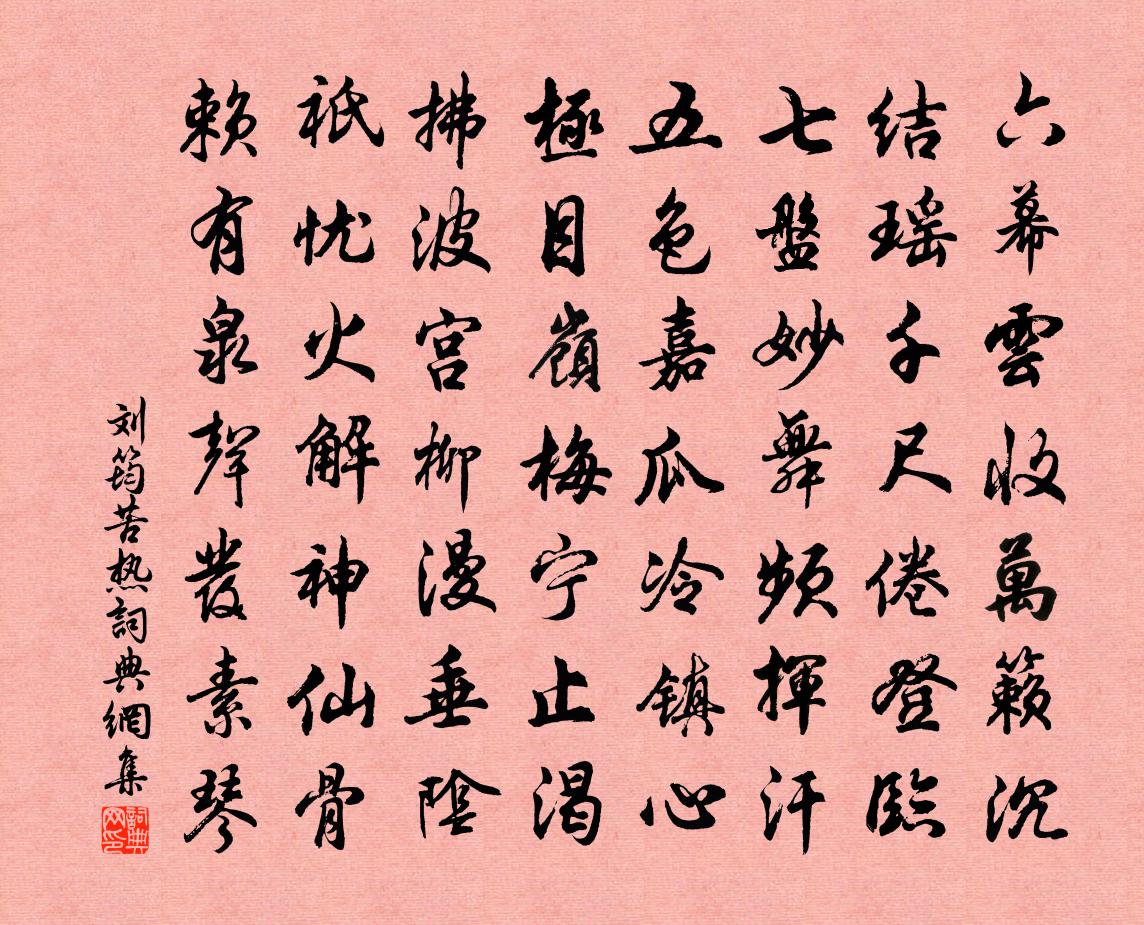 六幕雲收萬籟沉
结瑶千尺倦登臨
七盤妙舞頻揮汗
五色嘉瓜冷镇心
極目嶺梅宁止渴
拂波宫柳漫垂陰
祇忧火解神仙骨
赖有泉聲發素琴
刘筠苦热詞典網集
詞典网印